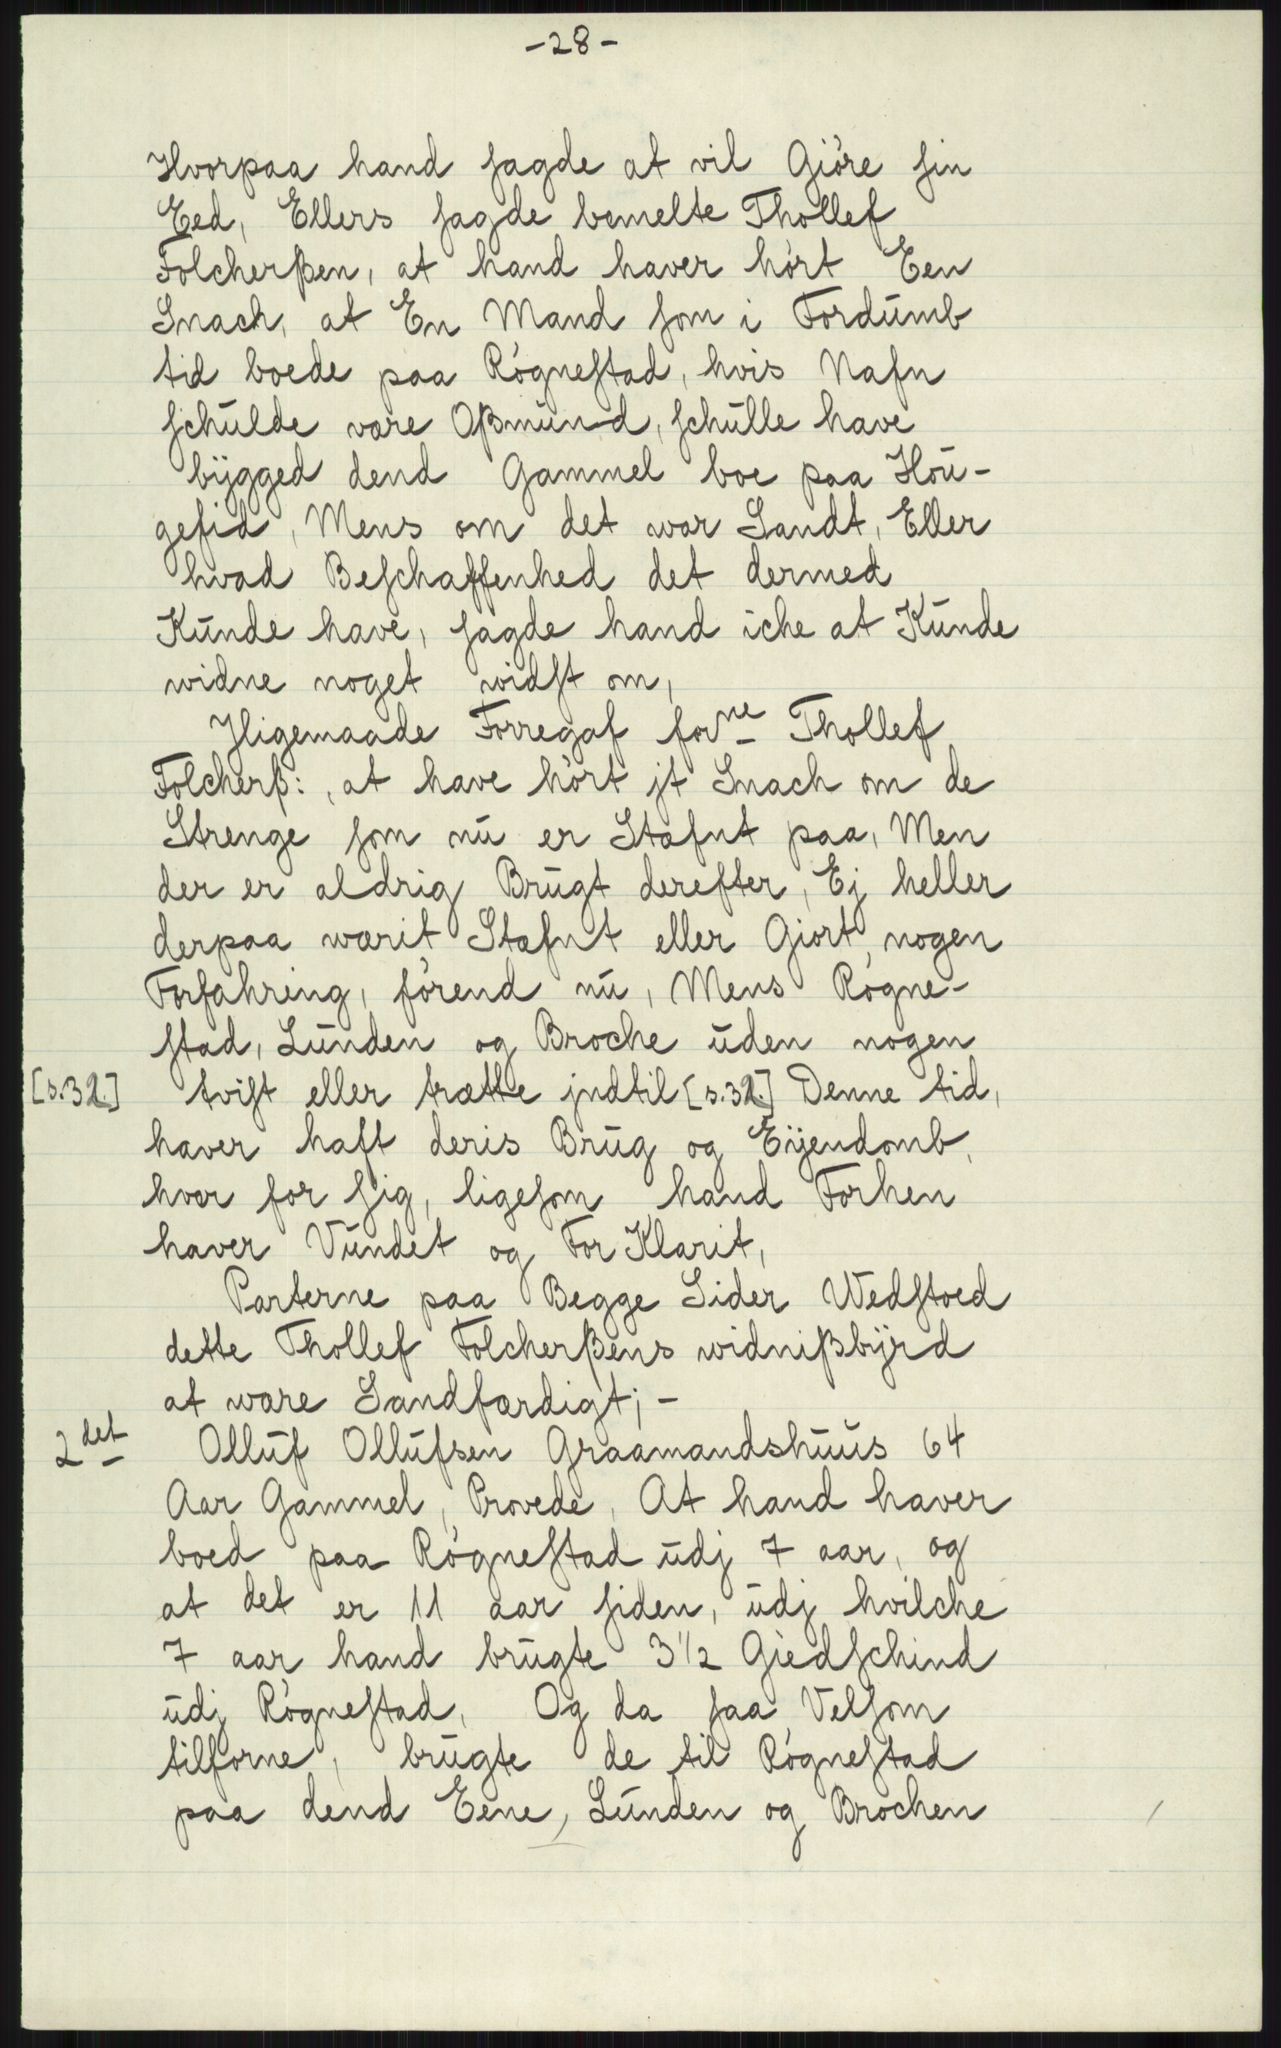 -28-
Hvorpaa hand sagde at vil Giøre sin
Eed, Ellers sagde bemelte Thollef
Folcherßen, at hand haver hørt Een
Snach, at En Mand som i Fordumb
tid boede paa Røgnestad, hvis Nafn
schulde være Oßmund, schulle have
bÿgged dend Gammel boe paa Hou-
gefid, Mens om det war Sandt, Eller
hvad Beschaffenhed det dermed
Kunde have, sagde hand iche at Kunde
widne noget widst om,
Jligemaade Forregaf forne Thollef
Folcherß:, at have hørt jt Snach om de
Strenge som nu er Stæfnt paa, Men
der er aldrig Brugt derefter, Ej heller
derpaa wærit Stæfnt eller Giort nogen
Forfahring, førend nu, Mens Røgne-
stad, Lunden og Broche uden nogen
[s.32.] tvist eller trætte jndtil [s.32.] Denne tid,
haver haft deris Brug og Eÿendomb,
hver for sig, ligesom hand Forhen
haver Vundet og For Klarit,
Parterne paa Begge Sider Wedstoed
dette Thollef Folcherßens widnißbÿrd
at wære Sandfærdigt; -
2det Olluf Ollufsen Graamandshuus 64
Aar Gammel, Provede, At hand haver
boed paa Røgnestad udj 7 aar, og
at det er 11 aar siden, udj hvilche
7 aar hand brugte 3 1/2 Giedschind
udj Røgnestad, Og da saa Velsom
tilforne, brugte de til Røgnestad
paa dend Eene, Lunden og Brochen